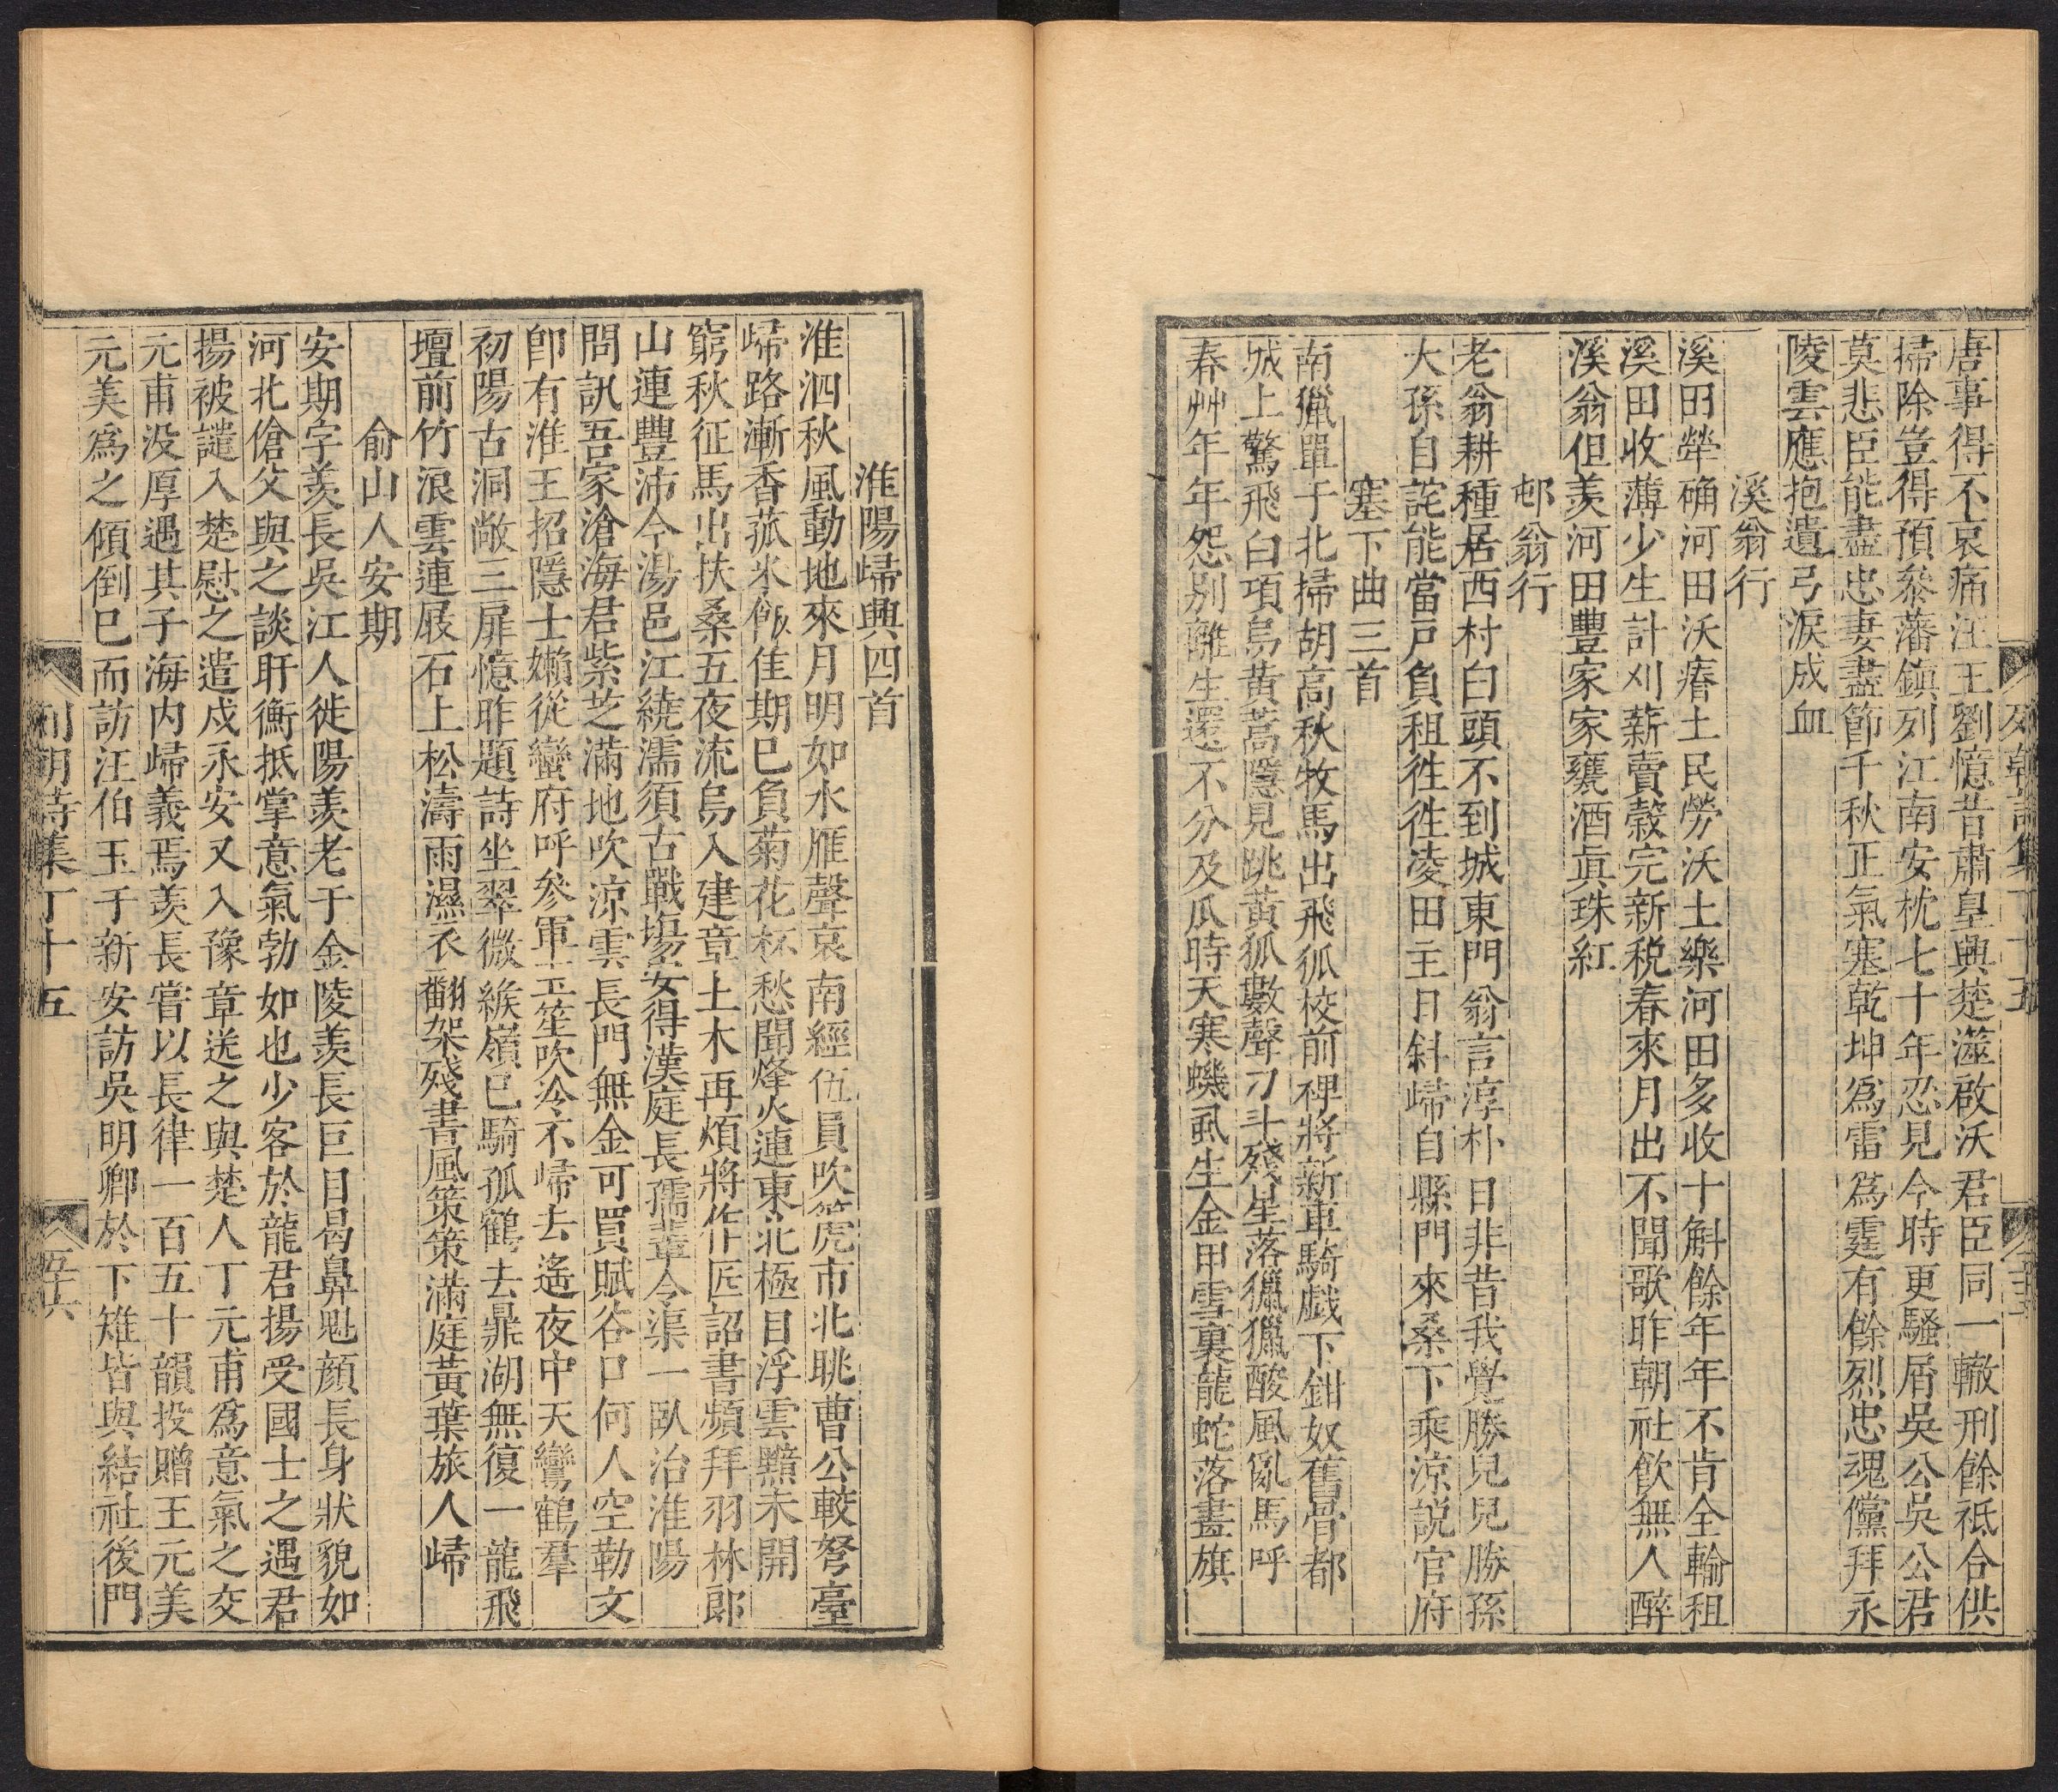 列朝詩集丁十五
唐事得不哀痛汪王劉憶昔肅皇興楚澨啟沃君臣同一轍刑餘祗合供
掃除豈得預叅藩鎮列江南安枕七十年忍見今時更騷屑吳公吳公君
莫悲臣能盡忠妻盡節千秋正氣塞乾坤爲雷爲霆有餘烈忠魂儻拜永
陵雲應抱遺弓淚成血
溪翁行
溪田犖确河田沃瘠土民勞沃土樂河田多收十斛餘年年不肯全輸租
溪田收薄少生計刈薪賣榖完新税春來月出不聞歌昨朝社飲無人醉
溪翁但羡河田豐家家甕酒眞珠紅
邨翁行
老翁耕種居西村白頭不到城東門翁言淳朴日非昔我覺勝兒兒勝孫
大孫自詫能當戸負租徃徃凌田主日斜歸自縣門來桑下乘凉説官府
塞下曲三首
南獵單于北掃胡高秋牧馬出飛狐校前裨將新車騎戯下鉗奴舊骨都
城上驚飛白項烏黄蒿隱見跳黄狐數聲刁斗殘星落獵獵酸風亂馬呼
春艸年年怨别離生還不分及瓜時天寒蟣虱生金甲雪裏龍蛇落畫旗
淮陽歸興四首
淮泗秋風動地來月明如水雁聲哀南經伍員吹箎市北眺曹公較弩臺
歸路漸香菰米飯佳期已負菊花杯愁聞烽火連東北極目浮雲黯未開
窮秋征馬出扶桑五夜流烏入建章土木再煩將作匠詔書頻拜羽林郎
山連豐沛今湯邑江繞濡須古戰塲安得漢庭長孺輩今渠一臥治淮陽
問訊吾家滄海君紫芝滿地吹涼雲長門無金可買賦谷口何人空勒文
卽有淮王招隱士嬾從蠻府呼參軍玉笙吹冷不歸去遙夜中天鸞鶴羣
初陽古洞敞三扉憶昨題詩坐翠微緱嶺已騎孤鶴去鼎湖無復一龍飛
壇前竹浪雲連屐石上松濤雨濕衣翻架殘書風策策滿庭黃葉旅人歸
俞山人安期
安期字羡長吳江人徙陽羡老于金陵羡長巨目曷鼻魁顔長身狀貌如
河北傖父與之談盱衡抵掌意氣勃如也少客於龍君揚受國士之遇君
揚被譴入楚慰之遣戍永安又入豫章送之與楚人丁元甫爲意氣之交
元甫没厚遇其子海内歸義焉羡長嘗以長律一百五十韻投贈王元美
元美爲之傾倒已而訪汪伯玉于新安訪吳明卿於下雉皆與結社後門
列朝詩集丁十五